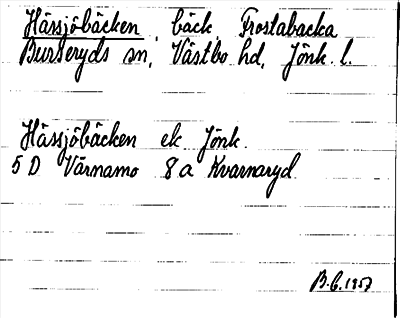 Hässjöbäcken, bäck, Frostabacka
Burseryds sn, Västbo hd, Jönk. l.
Hässjöbäcken ek Jönk.
5 D Värnamo 8a Kvarnaryd